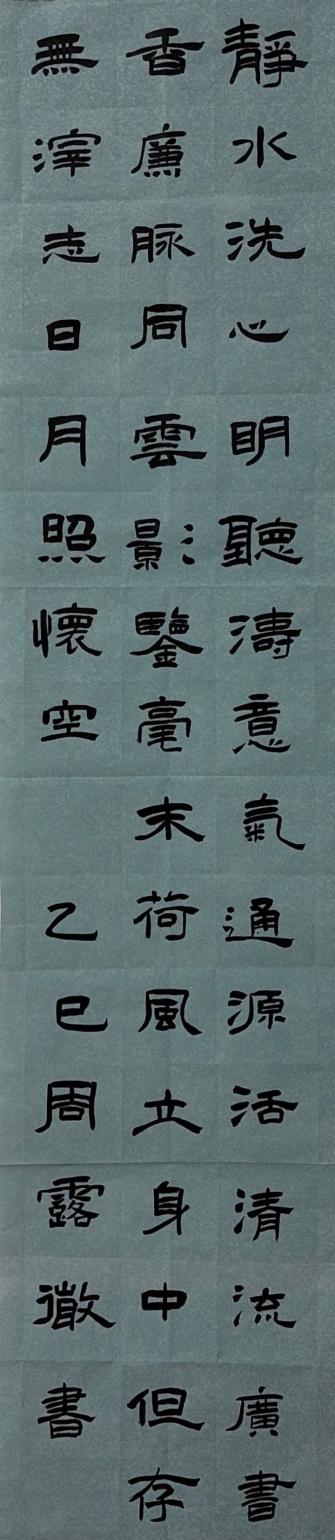 靜水洗心明聽濤意氣通源活清流廣書
香廉脉同雲影鑒毫末荷風立身中但存
無滓志日月照懷空
乙巳周露徽書